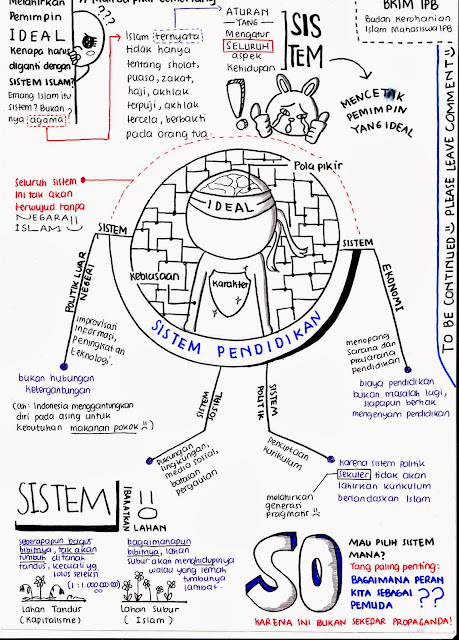 Melahirkan
Pemimpin
IDEAL
Kenapa harus
diganti dengan
SISTEM ISLAM?
Emang Islam itu
sistem? Bukan
nya agama?
???
Islam ternyata
tidak hanya
tentang sholat,
puasa, zakat,
haji, akhlak
terpuji, akhlak
tercela, berbakti
pada orang tua.
ATURAN
YANG
Mengatur
SELURUH
aspek
Kehidupan
SIS
TEM
!
MENCETAK
PEMIMPIN
YANG IDEAL
BKIM IPB
Badan Kerohanian
Islam Mahasiswa IPB
TO BE CONTINUED =) PLEASE LEAVE COMMENT =)
Seluruh sistem
ini tak akan
terwujud tanpa
NEGARA!!
ISLAM
Pola pikir
IDEAL
Kebiasaan
Karakter
SISTEM PENDIDIKAN
SISTEM
POLITIK LUAR
NEGERI
improvisasi
informasi,
peningkatan
teknologi.
bukan hubungan
ketergantungan
(cth: Indonesia menggantungkan
diri pada asing untuk
kebutuhan makanan pokok )
SISTEM
EKONOMI
menopang
sarana dan
prasarana
pendidikan
biaya pendidikan
bukan masalah lagi,
siapapun berhak
mengenyam pendidikan
SISTEM
SOSIAL
Dukungan
lingkungan,
media sosial,
batasan
pergaulan
SISTEM
POLITIK
Penciptaan
kurikulum
karena sistem politik
sekuler tidak akan
lahirkan kurikulum
berlandaskan Islam
melahirkan
generasi
pragmatis
SISTEM
IBARATKAN
!!
LAHAN
seberapapun bagus
bibitnya, tak akan
tumbuh di tanah
tandus, kecuali yg
lolos seleksi
(1 : 1.000.000.00)
Lahan Tandus
(Kapitalisme)
bagaimanapun
bibitnya, lahan
subur akan menghidupinya
walau yang lemah
tumbuhnya
lambat.
Lahan Subur
( Islam )
SO
MAU PILIH SISTEM
MANA?
Yang paling penting:
BAGAIMANA PERAN
KITA SEBAGAI
PEMUDA ??
KARENA INI BUKAN SEKEDAR PROPAGANDA!